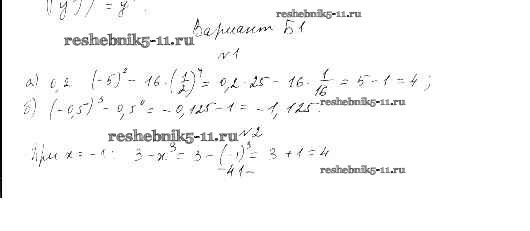 reshebnik5-11.ru
Вариант Б1
reshebnik5-11.ru
№1
а) 0,2 (-5)² - 16·(1/2)⁴ = 0,2·25 - 16·1/16 = 5 - 1 = 4;
б) (-0,5)³ - 0,5⁰ = -0,125 - 1 = -1,125.
reshebnik5-11.ru
reshebnik5-11.ru №2
При x = -1: 3 - x³ = 3 - (-1)³ = 3 + 1 = 4
reshebnik5-11.ru
-41-